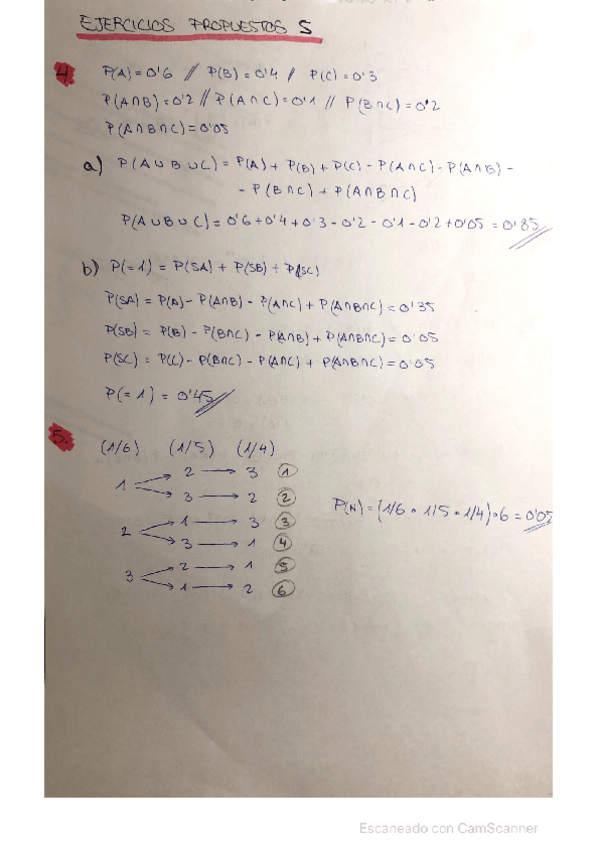 EJERCICIOS PROPUESTOS 5
4 P(A)=0'6 // P(B)=0'4 / P(C)=0'3
P(A∩B)=0'2 // P(A∩C)=0'1 // P(B∩C)=0'2
P(A∩B∩C)=0'05
a) P(A∪B∪C) = P(A) + P(B) + P(C) - P(A∩C) - P(A∩B) -
- P(B∩C) + P(A∩B∩C)
P(A∪B∪C) = 0'6+0'4+0'3-0'2-0'1-0'2+0'05 = 0'85
b) P(=1) = P(SA) + P(SB) + P(SC)
P(SA) = P(A) - P(A∩B) - P(A∩C) + P(A∩B∩C) = 0'35
P(SB) = P(B) - P(B∩C) - P(A∩B) + P(A∩B∩C) = 0'05
P(SC) = P(C) - P(B∩C) - P(A∩C) + P(A∩B∩C) = 0'05
P(=1) = 0'45
5. (1/6) (1/5) (1/4)
1 → 2 → 3 ①
→ 3 → 2 ②
2 → 1 → 3 ③
→ 3 → 1 ④
3 → 2 → 1 ⑤
→ 1 → 2 ⑥
P(N) = (1/6 · 1/5 · 1/4) · 6 = 0'05
Escaneado con CamScanner